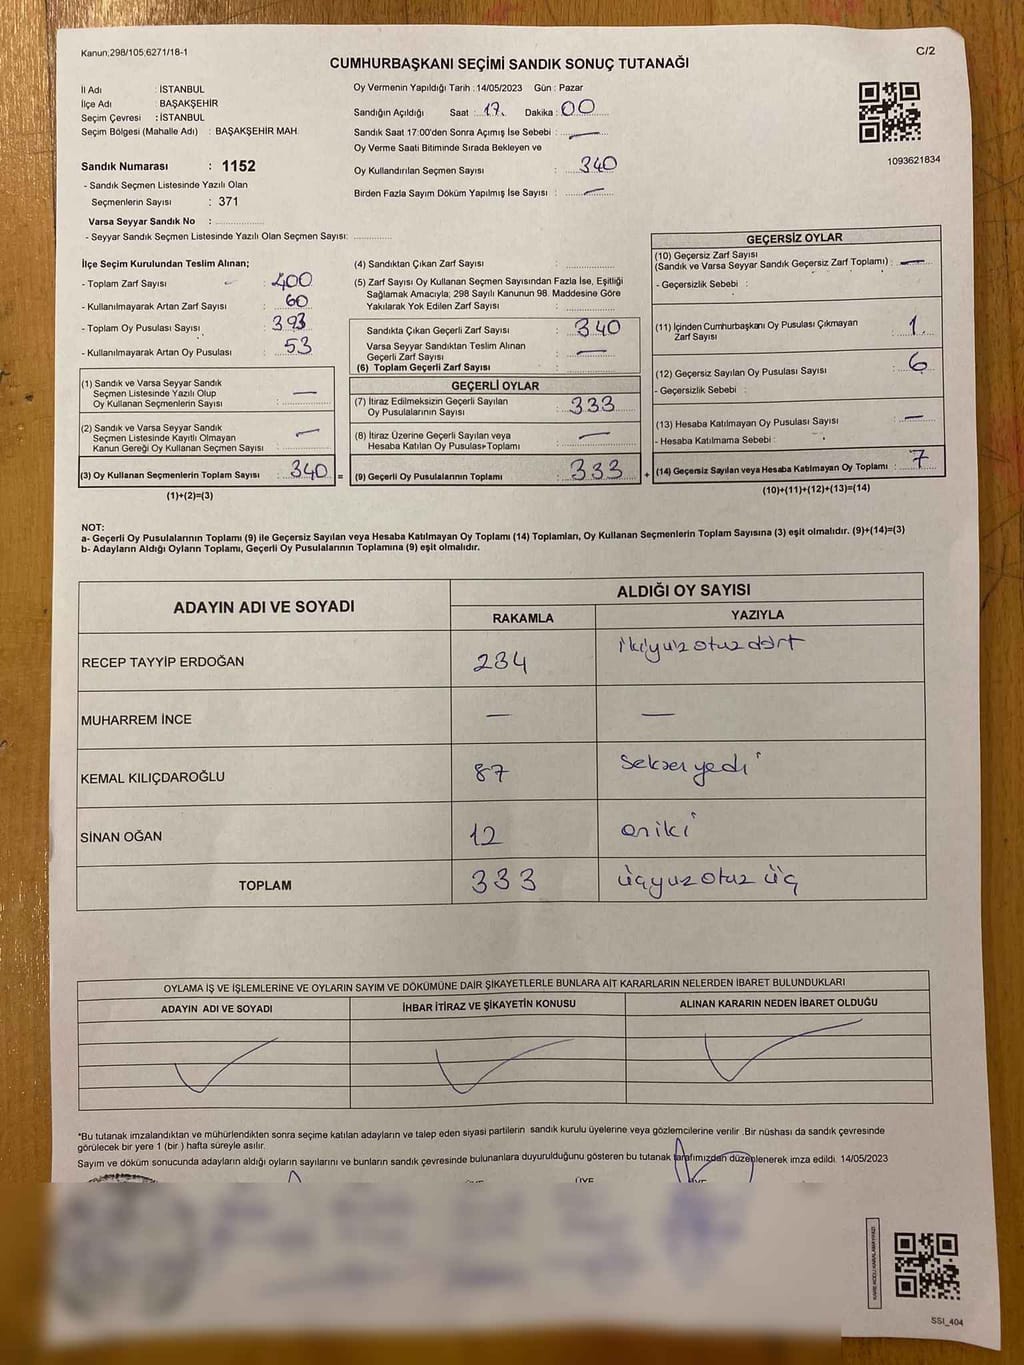 Kanun;298/105;6271/18-1
C/2
CUMHURBAŞKANI SEÇİMİ SANDIK SONUÇ TUTANAĞI
İl Adı : İSTANBUL
İlçe Adı : BAŞAKŞEHİR
Seçim Çevresi : İSTANBUL
Seçim Bölgesi (Mahalle Adı) : BAŞAKŞEHİR MAH.
Sandık Numarası : 1152
- Sandık Seçmen Listesinde Yazılı Olan
Seçmenlerin Sayısı : 371
Varsa Seyyar Sandık No :
- Seyyar Sandık Seçmen Listesinde Yazılı Olan Seçmen Sayısı:
Oy Vermenin Yapıldığı Tarih : 14/05/2023 Gün : Pazar
Sandığın Açıldığı Saat : 17. Dakika : 00
Sandık Saat 17:00'den Sonra Açımış İse Sebebi : —
Oy Verme Saati Bitiminde Sırada Bekleyen ve
Oy Kullandırılan Seçmen Sayısı : 340
Birden Fazla Sayım Döküm Yapılmış İse Sayısı : —
1093621834
İlçe Seçim Kurulundan Teslim Alınan;
- Toplam Zarf Sayısı : 400
- Kullanılmayarak Artan Zarf Sayısı : 60
- Toplam Oy Pusulası Sayısı : 393
- Kullanılmayarak Artan Oy Pusulası : 53
(1) Sandık ve Varsa Seyyar Sandık
Seçmen Listesinde Yazılı Olup
Oy Kullanan Seçmenlerin Sayısı : —
(2) Sandık ve Varsa Seyyar Sandık
Seçmen Listesinde Kayıtlı Olmayan
Kanun Gereği Oy Kullanan Seçmen Sayısı : —
(3) Oy Kullanan Seçmenlerin Toplam Sayısı : 340 =
(1)+(2)=(3)
(4) Sandıktan Çıkan Zarf Sayısı :
(5) Zarf Sayısı Oy Kullanan Seçmen Sayısından Fazla İse, Eşitliği
Sağlamak Amacıyla; 298 Sayılı Kanunun 98. Maddesine Göre
Yakılarak Yok Edilen Zarf Sayısı :
Sandıkta Çıkan Geçerli Zarf Sayısı : 340
Varsa Seyyar Sandıktan Teslim Alınan
Geçerli Zarf Sayısı : —
(6) Toplam Geçerli Zarf Sayısı :
GEÇERLİ OYLAR
(7) İtiraz Edilmeksizin Geçerli Sayılan
Oy Pusulalarının Sayısı : 333
(8) İtiraz Üzerine Geçerli Sayılan veya
Hesaba Katılan Oy Pusulas Toplamı : —
(9) Geçerli Oy Pusulalarının Toplamı : 333 +
GEÇERSİZ OYLAR
(10) Geçersiz Zarf Sayısı
(Sandık ve Varsa Seyyar Sandık Geçersiz Zarf Toplamı) : —
- Geçersizlik Sebebi :
(11) İçinden Cumhurbaşkanı Oy Pusulası Çıkmayan
Zarf Sayısı : 1
(12) Geçersiz Sayılan Oy Pusulası Sayısı : 6
- Geçersizlik Sebebi :
(13) Hesaba Katılmayan Oy Pusulası Sayısı : —
- Hesaba Katılmama Sebebi :
(14) Geçersiz Sayılan veya Hesaba Katılmayan Oy Toplamı : 7
(10)+(11)+(12)+(13)=(14)
NOT:
a- Geçerli Oy Pusulalarının Toplamı (9) ile Geçersiz Sayılan veya Hesaba Katılmayan Oy Toplamı (14) Toplamları, Oy Kullanan Seçmenlerin Toplam Sayısına (3) eşit olmalıdır. (9)+(14)=(3)
b- Adayların Aldığı Oyların Toplamı, Geçerli Oy Pusulalarının Toplamına (9) eşit olmalıdır.
ADAYIN ADI VE SOYADI
ALDIĞI OY SAYISI
RAKAMLA YAZIYLA
RECEP TAYYİP ERDOĞAN 234 ikiyüz otuz dört
MUHARREM İNCE — —
KEMAL KILIÇDAROĞLU 87 seksen yedi
SİNAN OĞAN 12 oniki
TOPLAM 333 üçyuz otuz üç
OYLAMA İŞ VE İŞLEMLERİNE VE OYLARIN SAYIM VE DÖKÜMÜNE DAİR ŞİKAYETLERLE BUNLARA AİT KARARLARIN NELERDEN İBARET BULUNDUKLARI
ADAYIN ADI VE SOYADI İHBAR İTİRAZ VE ŞİKAYETİN KONUSU ALINAN KARARIN NEDEN İBARET OLDUĞU
*Bu tutanak imzalandıktan ve mühürlendikten sonra seçime katılan adayların ve talep eden siyasi partilerin sandık kurulu üyelerine veya gözlemcilerine verilir .Bir nüshası da sandık çevresinde
görülecek bir yere 1 (bir ) hafta süreyle asılır.
Sayım ve döküm sonucunda adayların aldığı oyların sayılarını ve bunların sandık çevresinde bulunanlara duyurulduğunu gösteren bu tutanak tarafımızdan düzenlenerek imza edildi. 14/05/2023
ÜYE
SSİ_404